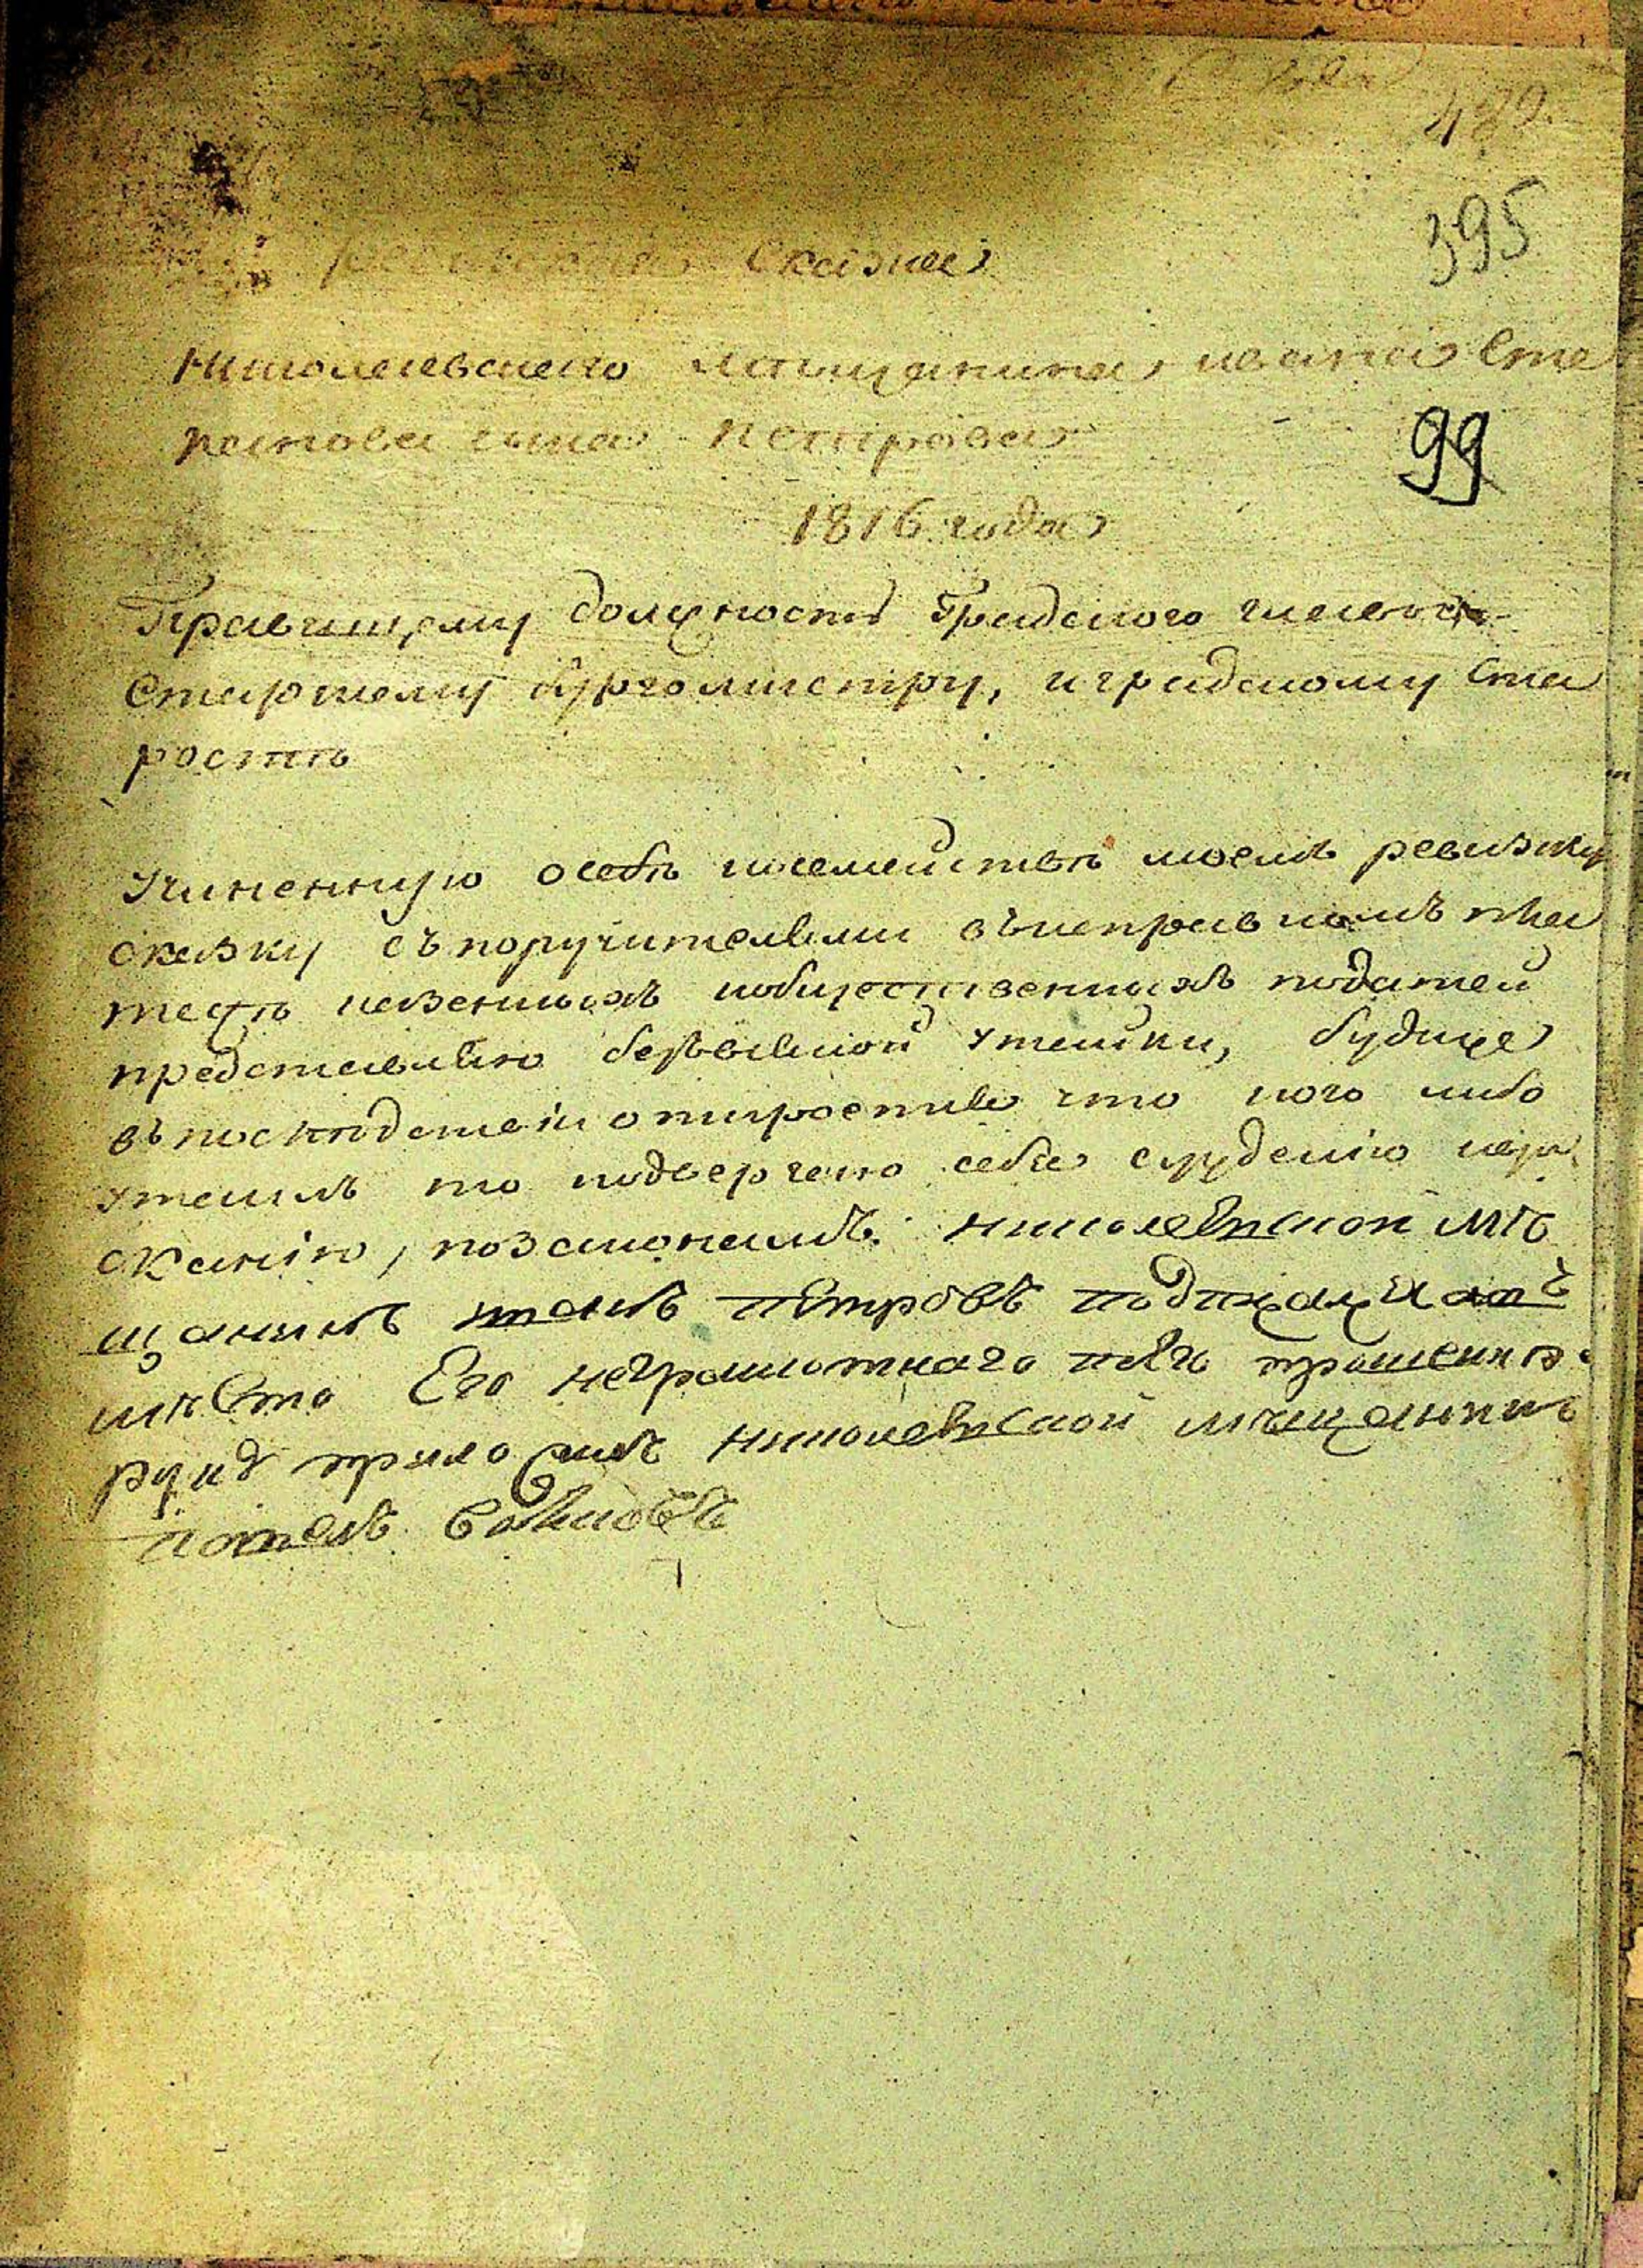 489
395
Ревизская Сказка
Николаевского мещанина ивана Сте
панова сына Петрова
99
1816 года
Правящему должность Градского главы
Старшему бургомистру, и градскому Ста
росте
Учиненную о себе и осемействе моем ревизкую
сказку съ поручителями въ исправном пла
теже казенныхъ и общественныхъ податей
представляю безвсякой утайки, будиже
въ последствии откроется что кого либо
утаилъ то подвергаю себя суждению и взы
сканию, по законамъ. николаевской мѣ
щанинъ иванъ петровъ
вмѣсто Его неграмотнаго по Его прошению
руку приложилъ николаевской мещанинъ